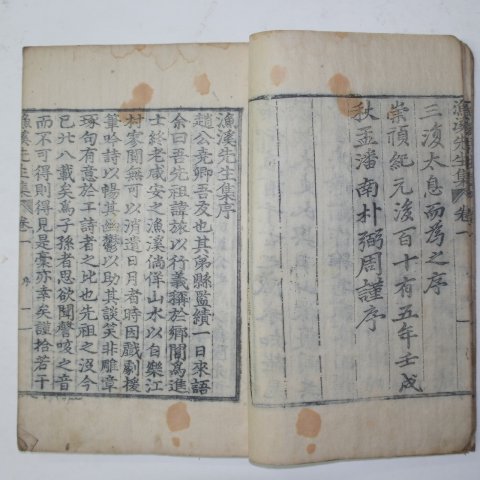 漁溪先生集 卷一
三復太息而為之序
崇禎紀元後百十有五年壬戌
秋孟潘南朴弼周謹序
漁溪先生集序
趙公堯卿吾友也其弟縣監績一日來語
余曰吾先祖諱旅以行義稱於鄉閭爲進
士終老咸安之漁溪倘佯山水以自樂江
村家閴無可消遣日月者時因戲劇援
筆吟詩以暢其幽鬱以助其談笑非雕章
琢句有意於工詩者之比也先祖之沒今
已廿八載矣爲子孫者思欲聞謦咳之音
而不可得則得見是藁亦幸矣謹拾若干
漁溪先生集 卷一 序 一